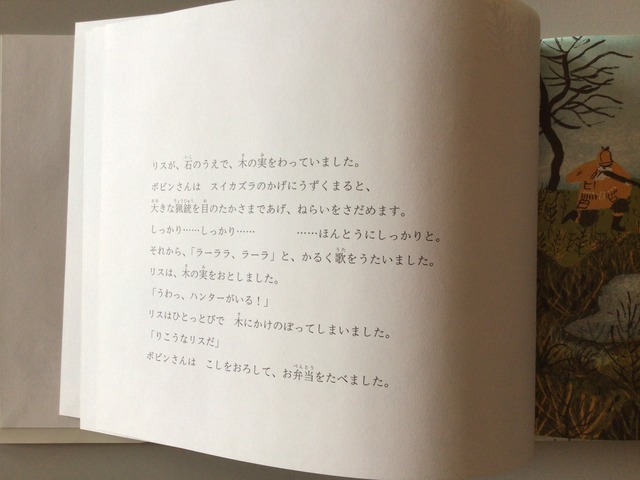 リスが、石のうえで、木の実をわっていました。
ポピンさんは　スイカズラのかげにうずくまると、
大きな猟銃を目のたかさまであげ、ねらいをさだめます。
しっかり……しっかり……　　　……ほんとうにしっかりと。
それから、「ラーララ、ラーラ」と、かるく歌をうたいました。
リスは、木の実をおとしました。
「うわっ、ハンターがいる！」
リスはひとっとびで　木にかけのぼってしまいました。
「りこうなリスだ」
ポピンさんは　こしをおろして、お弁当をたべました。